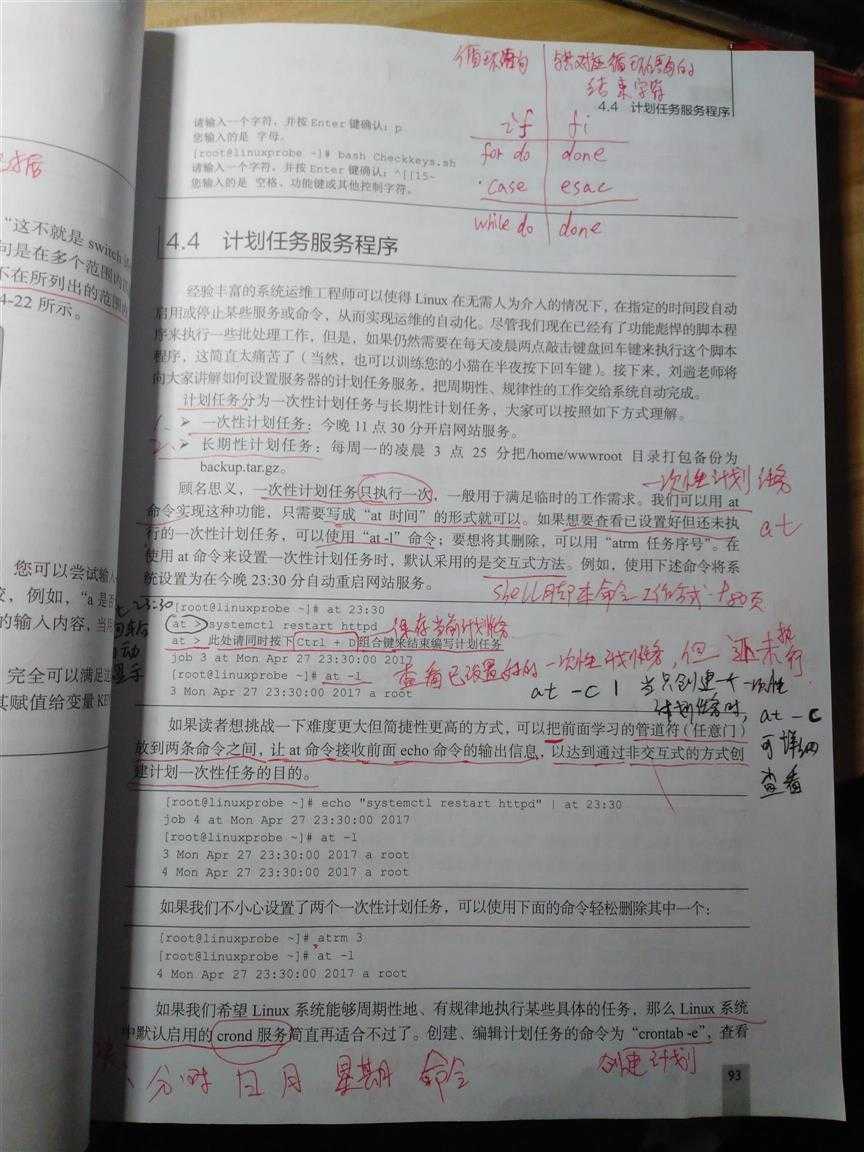 循环语句 与其对应循环语句的
结束字符
4.4 计划任务服务程序
if fi
for do done
case esac
while do done
请输入一个字符，并按 Enter 键确认：p
您输入的是 字母。
[root@linuxprobe ~]# bash Checkkeys.sh
请输入一个字符，并按 Enter 键确认：^[[15~
您输入的是 空格、功能键或其他控制字符。
“这不就是 switch
句是在多个范围内
不在所列出的范围内
4-22 所示。
4.4 计划任务服务程序
经验丰富的系统运维工程师可以使得 Linux 在无需人为介入的情况下，在指定的时间段自动
启用或停止某些服务或命令，从而实现运维的自动化。尽管我们现在已经有了功能彪悍的脚本程
序来执行一些批处理工作，但是，如果仍然需要在每天凌晨两点敲击键盘回车键来执行这个脚本
程序，这简直太痛苦了（当然，也可以训练您的小猫在半夜按下回车键）。接下来，刘遄老师将
向大家讲解如何设置服务器的计划任务服务，把周期性、规律性的工作交给系统自动完成。
计划任务分为一次性计划任务与长期性计划任务，大家可以按照如下方式理解。
1、➢ 一次性计划任务：今晚 11 点 30 分开启网站服务。
2、➢ 长期性计划任务：每周一的凌晨 3 点 25 分把/home/wwwroot 目录打包备份为
backup.tar.gz。
一次性计划任务
at
顾名思义，一次性计划任务只执行一次，一般用于满足临时的工作需求。我们可以用 at
命令实现这种功能，只需要写成“at 时间”的形式就可以。如果想要查看已设置好但还未执
行的一次性计划任务，可以使用“at -l”命令；要想将其删除，可以用“atrm 任务序号”。在
使用 at 命令来设置一次性计划任务时，默认采用的是交互式方法。例如，使用下述命令将系
统设置为在今晚 23:30 分自动重启网站服务。
shell脚本命令工作方式
您可以尝试输入
例如，“a 是否
的输入内容，当用
完全可以满足
其赋值给变量 KEY
at 23:30
回车后
自动
显示
[root@linuxprobe ~]# at 23:30
at > systemctl restart httpd 保存当前计划任务
at > 此处请同时按下 Ctrl + D 组合键来结束编写计划任务
job 3 at Mon Apr 27 23:30:00 2017
[root@linuxprobe ~]# at -l 查看已设置好的一次性计划任务，但还未执行
3 Mon Apr 27 23:30:00 2017 a root
at -c 1 当只创建一个一次性
计划任务时，at -c
可详细
查看
如果读者想挑战一下难度更大但简捷性更高的方式，可以把前面学习的管道符（任意门）
放到两条命令之间，让 at 命令接收前面 echo 命令的输出信息，以达到通过非交互式的方式创
建计划一次性任务的目的。
[root@linuxprobe ~]# echo "systemctl restart httpd" | at 23:30
job 4 at Mon Apr 27 23:30:00 2017
[root@linuxprobe ~]# at -l
3 Mon Apr 27 23:30:00 2017 a root
4 Mon Apr 27 23:30:00 2017 a root
如果我们不小心设置了两个一次性计划任务，可以使用下面的命令轻松删除其中一个：
[root@linuxprobe ~]# atrm 3
[root@linuxprobe ~]# at -l
4 Mon Apr 27 23:30:00 2017 a root
如果我们希望 Linux 系统能够周期性地、有规律地执行某些具体的任务，那么 Linux 系统
中默认启用的 crond 服务简直再适合不过了。创建、编辑计划任务的命令为“crontab -e”，查看
创建计划
分 时 日 月 星期 命令
93